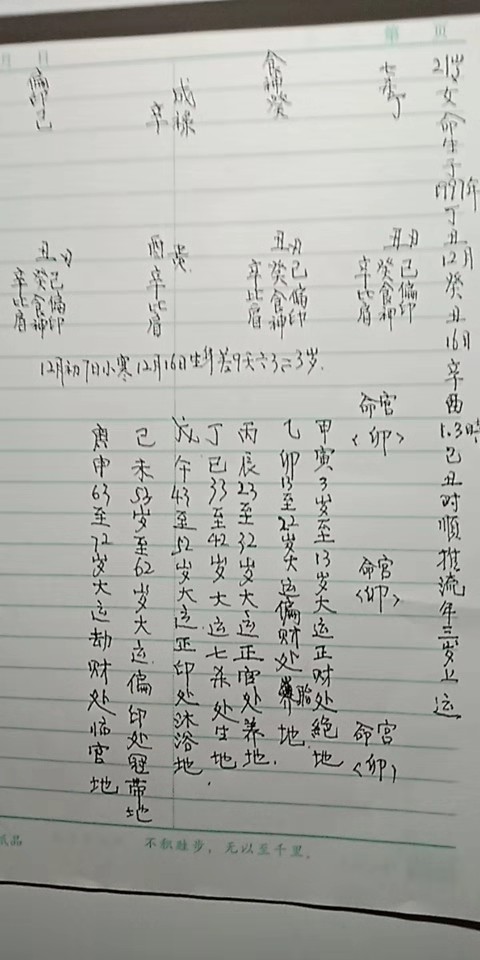 第 页
月 日
21岁女命生于1997年丁丑12月癸丑16日辛酉1.3時己丑时顺推流年三岁上运
七杀丁
食神癸
戌禄
辛
偏印己
丑刃
己偏印
癸食神
辛比肩
丑刃
己偏印
癸食神
辛比肩
酉
辛比肩
丑刃
己偏印
癸食神
辛比肩
12月初7日小寒12月16日生
命宫
<卯>
命宫
<卯>
命宫
<卯>
甲寅3岁至13岁大运正财处绝地
乙卯13至22岁大运偏财处胎地.
丙辰23至32岁大运正官处养地.
丁巳33至42岁大运七杀处生地.
戊午43至52岁大运正印处沐浴地
己未53岁至62岁大运偏印处冠带地
庚申63至72岁大运劫财处临官地
纸品
不积跬步，无以至千里。